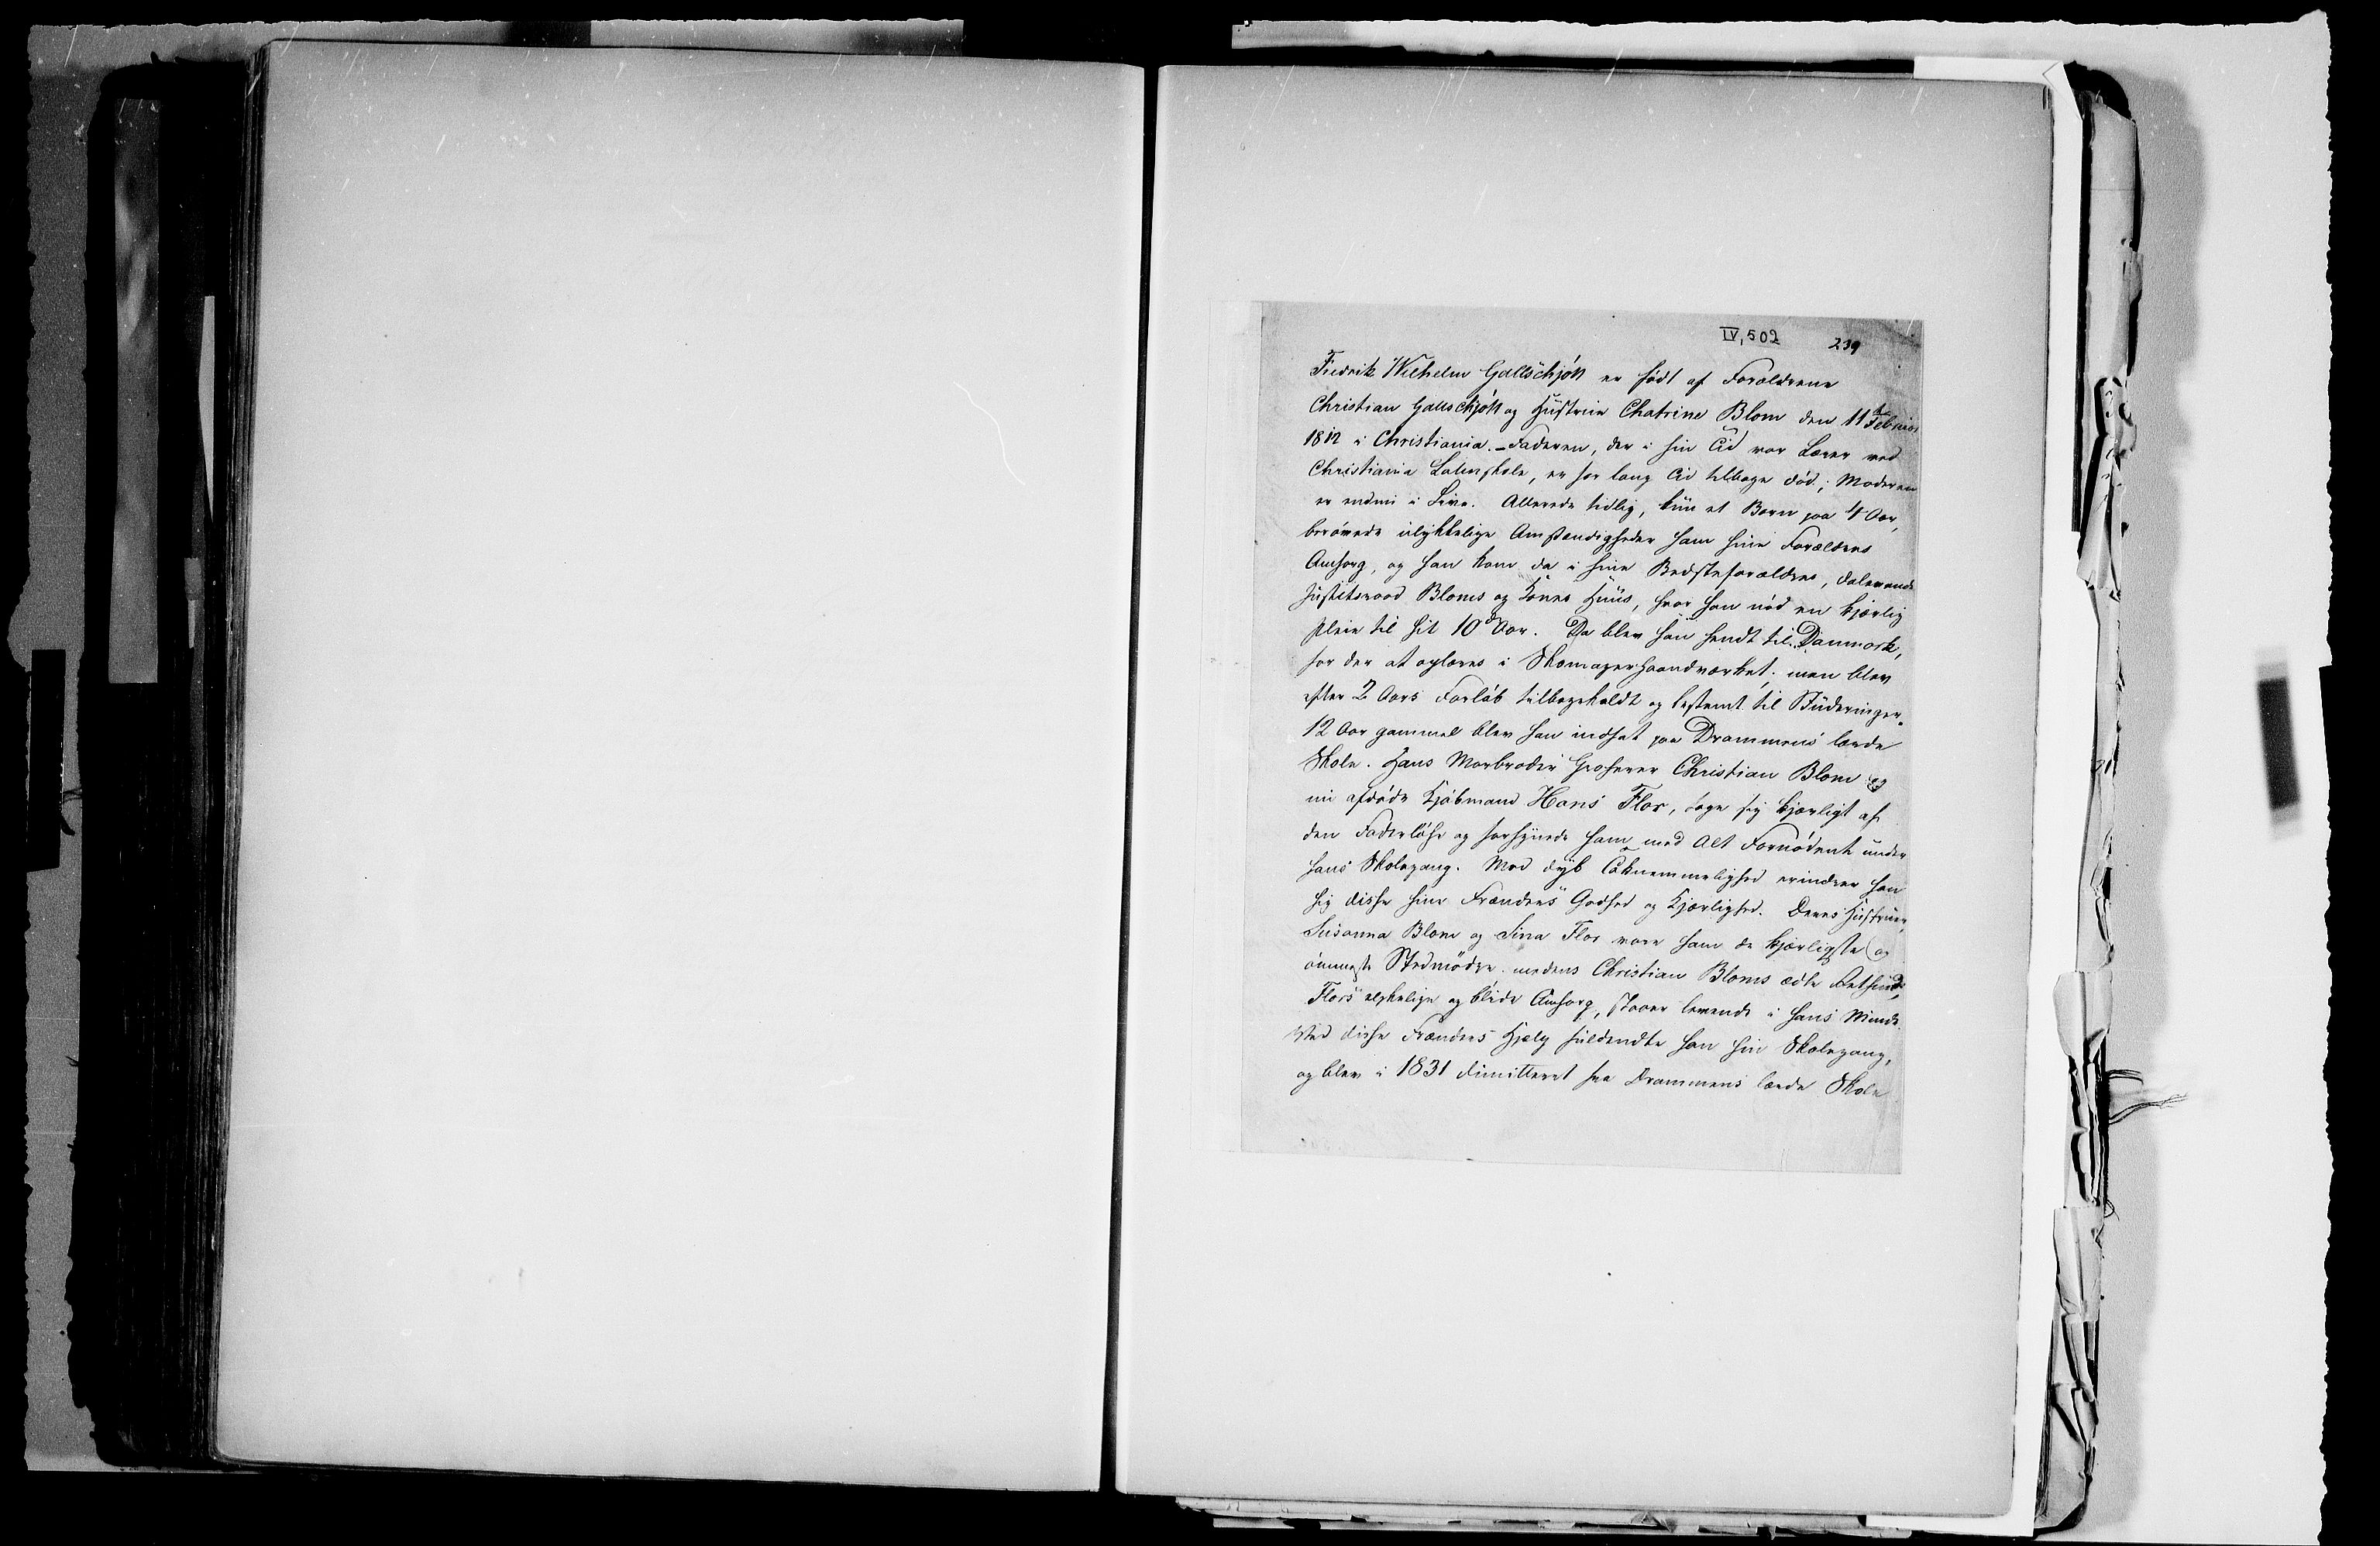 IV, 502 239
Fredrik Wilhelm Gallschjött er født af Forældrene
Christian Gallschjött og Hustrue Chatrine Blom den 11te Februar
1812 i Christiania. - Faderen, der i sin Tid var Lærer ved
Christiania Latinskole, er for lang Tid tilbage død; Moderen
er endnu i Live. Allerede tidlig, kun et Barn paa 4 Aar,
berøvede ulykkelige Omstændigheder ham sine Forældres
Omsorg, og han kom da i sine Bedsteforældres, dalevende
Justitsraad Bloms og Kones Huus, hvor han nød en kjærlig
Pleie til sit 10de Aar. Da blev han sendt til Danmark,
for der at oplæres i Skomagerhaandværket; men blev
efter 2 Aars Forløb tilbagekaldt og bestemt til Studeringer.
12 Aar gammel blev han indsat paa Drammens lærde
Skole. Hans Morbroder Grosserer Christian Blom og
nu afdøde Kjøbmand Hans Flor, toge sig kjærligt af
den Faderløse og forsynede ham med Alt Fornødent under
hans Skolegang. Med dyb Taknemmelighed erindrer han
sig disse sine Frænders Godhed og Kjærlighed. Deres Hustruer,
Susanna Blom og Sina Flor vare ham de kjærligste og
ømmeste Stedmødre. medens Christian Bloms ædle Retsind,
Flors elskelige og blide Omsorg, staaer levende i hans Minde.
Ved disse Frænders Hjælp fuldendte han sin Skolegang,
og blev i 1831 dimitteret fra Drammens lærde Skole